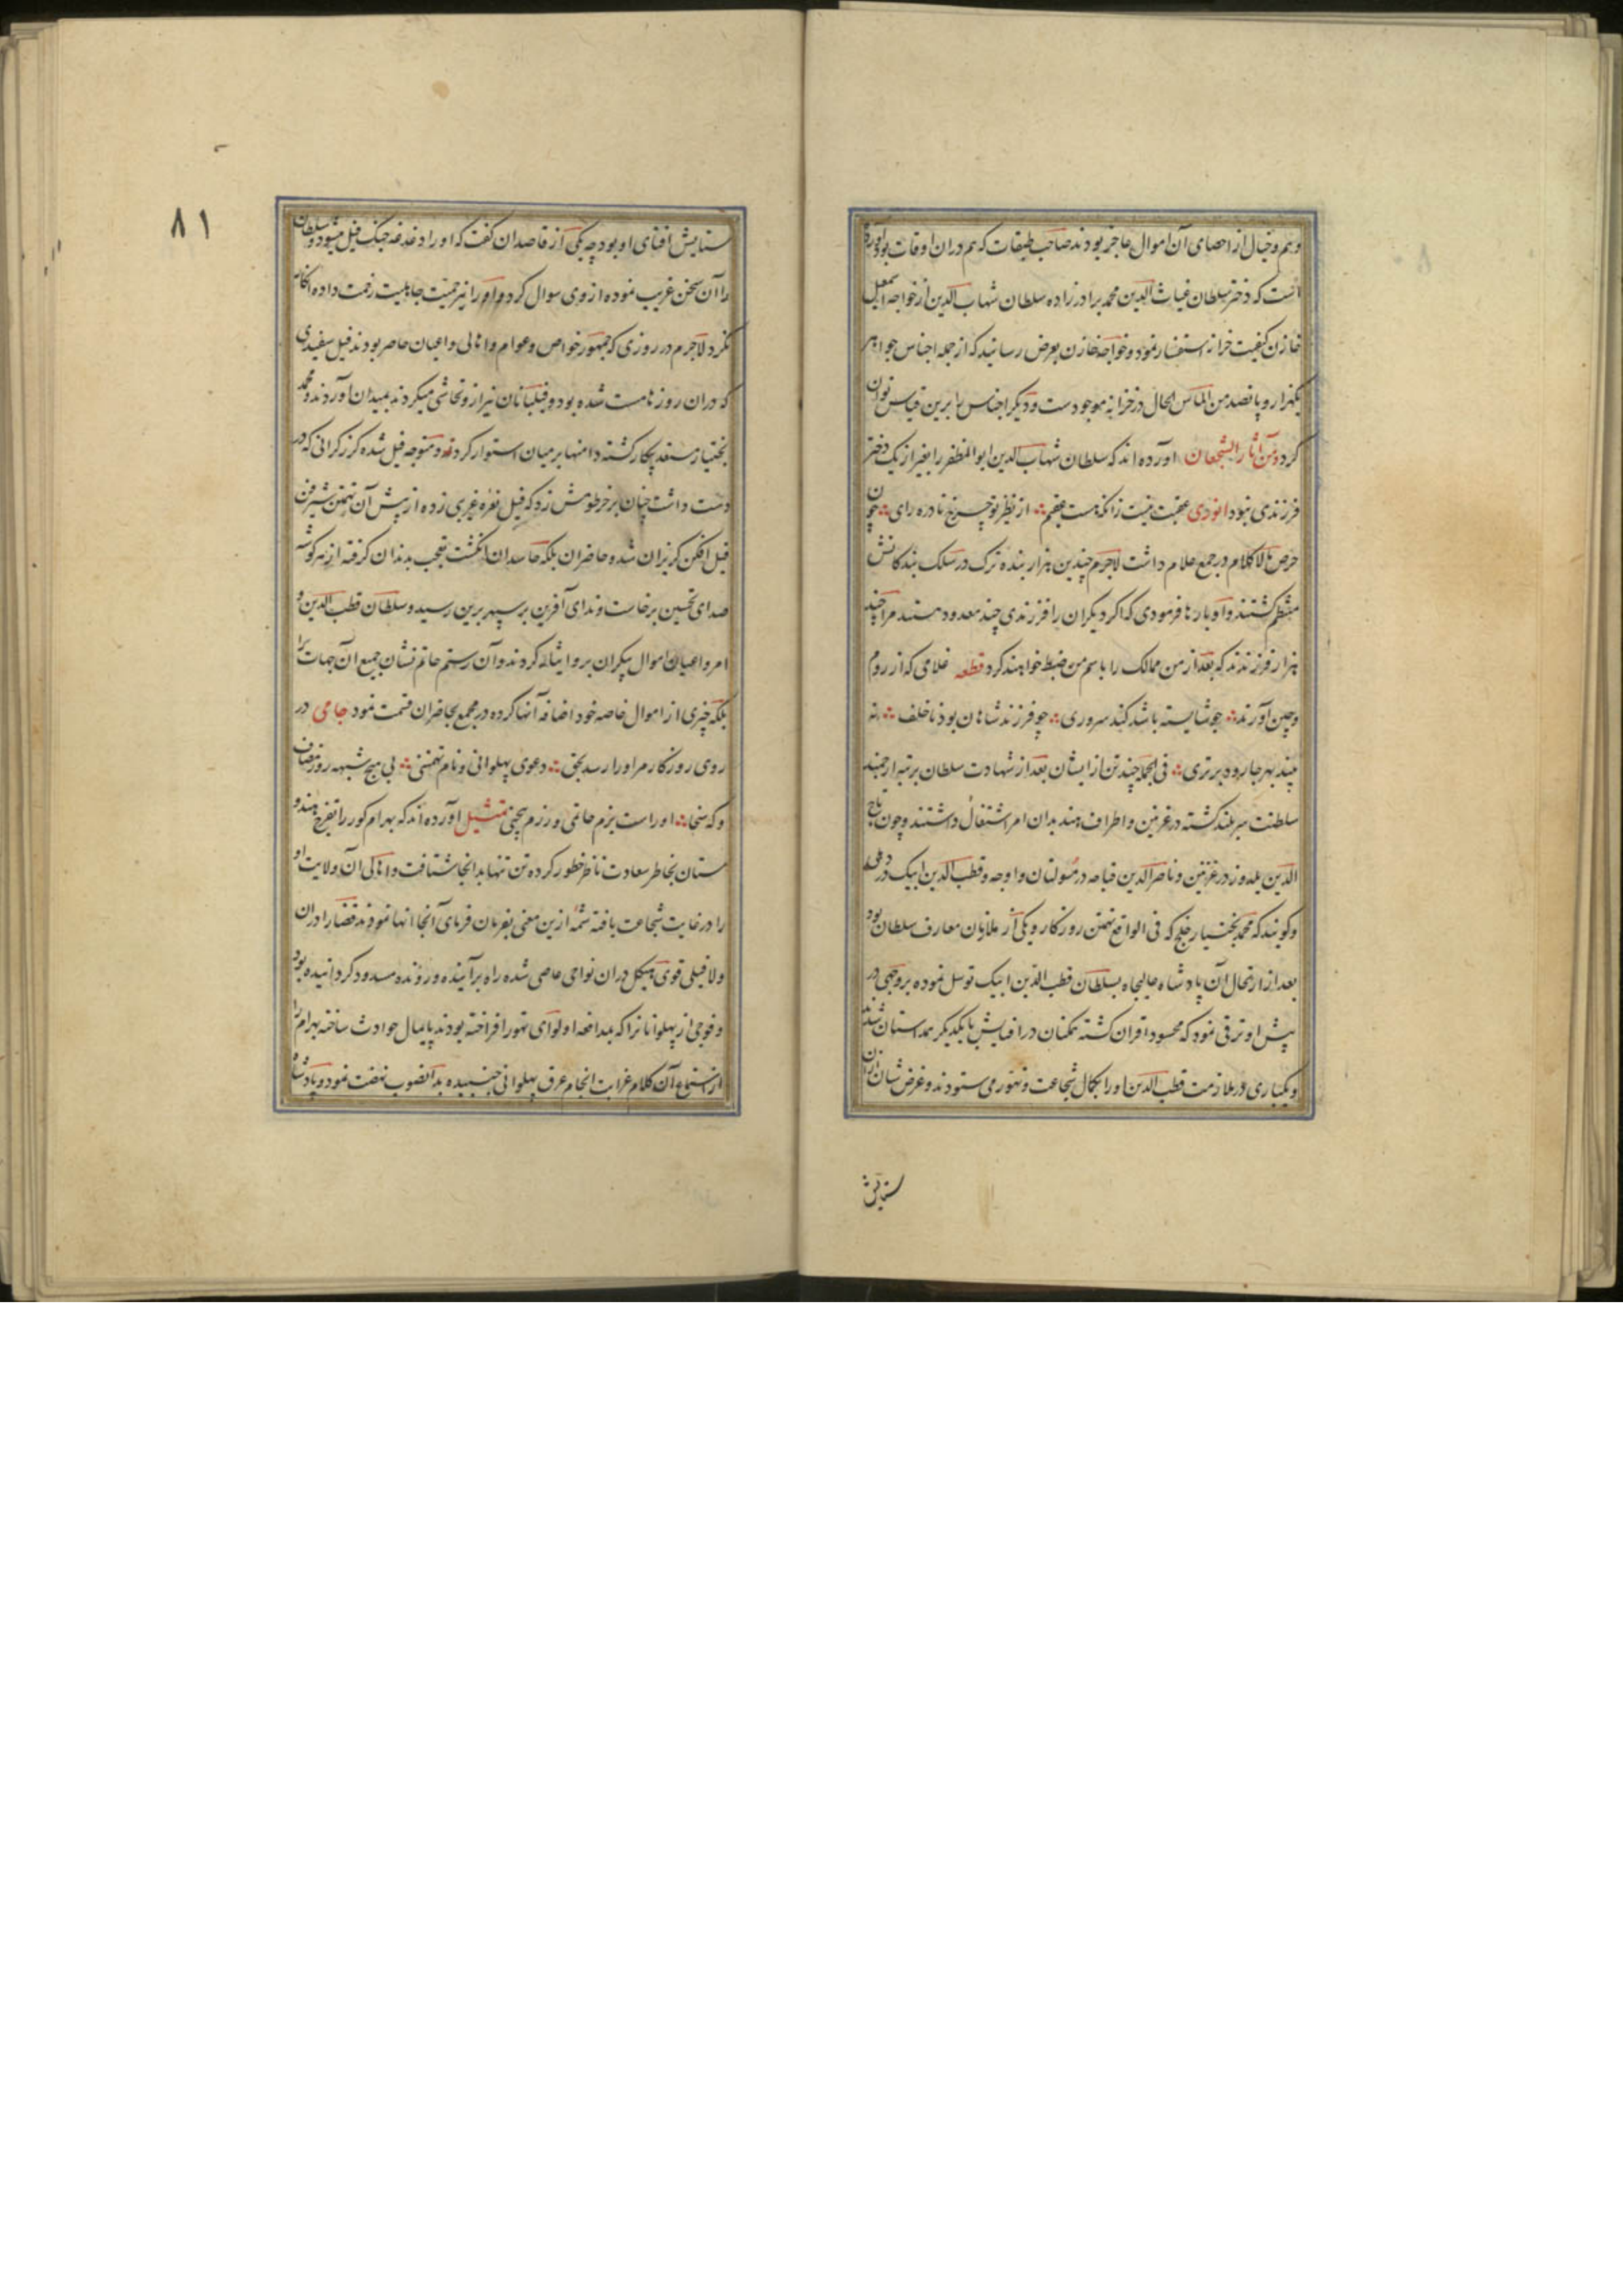 وهم و خیال از احصای آن اموال عاجز بودند صاحب طبقات که هم دران اوقات بود آورده
است که دختر سلطان غیاث الدین محمد برادرزاده سلطان شهاب الدین از خواجه اسمعیل
خازن کیفیت خزاز استفسار نمود و خواجه خازن بعرض رسانید که از جمله اجناس جواهر
یکهزار و پانصد من الماس الحال در خزانه موجودست و دیگر اجناس را برین قیاس توان
کرد و من آثار الشجعان آورده اند که سلطان شهاب الدین ابوالمظفر را بغیر از یک دختر
فرزندی نبود انوری عجبت نیست زانکه هست عقیم ؞ از نظیر تو چرخ نادره رای ؞ چون
حرص بلا کلام در جمع غلام داشت لاجرم چندین هزار بنده ترک در سلک بندکانش
منتظم کشتند و او بارها فرمودی که اکر دیکران را فرزندی چند معدود هستند مرا چند
هزار فرزندند که بعد از من ممالک را باسم من ضبط خواهند کرد قطعه غلامی که از روم
وچین آورند ؞ چو شایسته باشد کند سروری ؞ چو فرزند شاهان بود ناخلف ؞ نه
بیند بهر جا رود برتری ؞ فی الجمله چند تن از ایشان بعد از شهادت سلطان برتبه ارجمند
سلطنت سربلند کشته در غزنین و اطراف هند بدان امر اشتغال داشتند و چون تاج
الدین یلدوز در غزنین و ناصر الدین قباجه در مولتان و اوچه و قطب الدین ایبک در دهلی
و کویند که محمد بختیار خلج که فی الواقع تهمتن روزکار و یکی از ملازمان معارف سلطان بود
بعد از ارتحال آن پادشاه عالیجاه بسلطان قطب الدین ایبک توسل نموده بروجهی در
پیش او ترقی نمود که محسود اقران کشته همکنان در افنایش با یکدیکر همداستان شدند
و یکباری در ملازمت قطب الدین او را بکمال شجاعت و تهور می ستودند و غرض شان ازان
ستایش
٨١
ستایش افنای او بود چه یکی از قاصدان کفت که او را دغدغه جنک فیل میشود و سلطان
را آن سخن غریب نموده از وی سوال کرد و او را نیز حمیت جاهلیت رخصت داده انکار
نکرد لاجرم در روزی که جمهور خواص و عوام و اهالی و اعیان حاضر بودند فیل سفیدی
که دران روزها مست شده بود و فیلبانان نیز ازو تحاشی میکردند بمیدان آوردند و محمد
بختیار مستعد پیکار کشته دامنها بر میان استوار کرده و متوجه فیل شده کرز کرانی که در
دست داشت چنان بر خرطومش زد که فیل نعره غریبی زده از پیش آن تهمتن شیرفن
فیل افکن کریزان شد و حاضران بلکه حاسدان انکشت تعجب بدندان کرفته از هر کوشه
صدای تحسین برخاست و ندای آفرین بر سپهر برین رسید و سلطان قطب الدین و
امرا و اعیان اموال بیکران برو ایثار کردند و آن رستم حاتم نشان جمیع آن جهات را
بلکه چیزی از اموال خاصه خود اضافه آنها کرده در مجمع بحاضران قسمت نمود جامی در
روی روزکار مر او را رسد بحق ؞ دعوی پهلوانی و نام تهمتنی ؞ بی هیچ شبهه روز مصاف
و که سخا ؞ او راست بزم حاتمی و رزم بیژنی تمثیل آورده اند که بهرام کور را تفرج هندو
ستان بخاطر سعادت ناظر خطور کرده تن تنها بدانجا شتافت و اهالی آن ولایت او
را در غایت شجاعت یافته شمه ازین معنی بفرمان فرمای آنجا انها نمودند قضا را دران
ولا فیلی قوی هیکل دران نواحی عاصی شده راه بر آینده و رونده مسدود کردانیده بود
و فوجی از پهلوانانرا که بمدافعه او لوای تهور افراخته بودند پایمال حوادث ساخته بهرام را
از استماع آن کلام غرابت انجام عرق پهلوانی جنبیده بدانصوب نهضت نمود و پادشاه